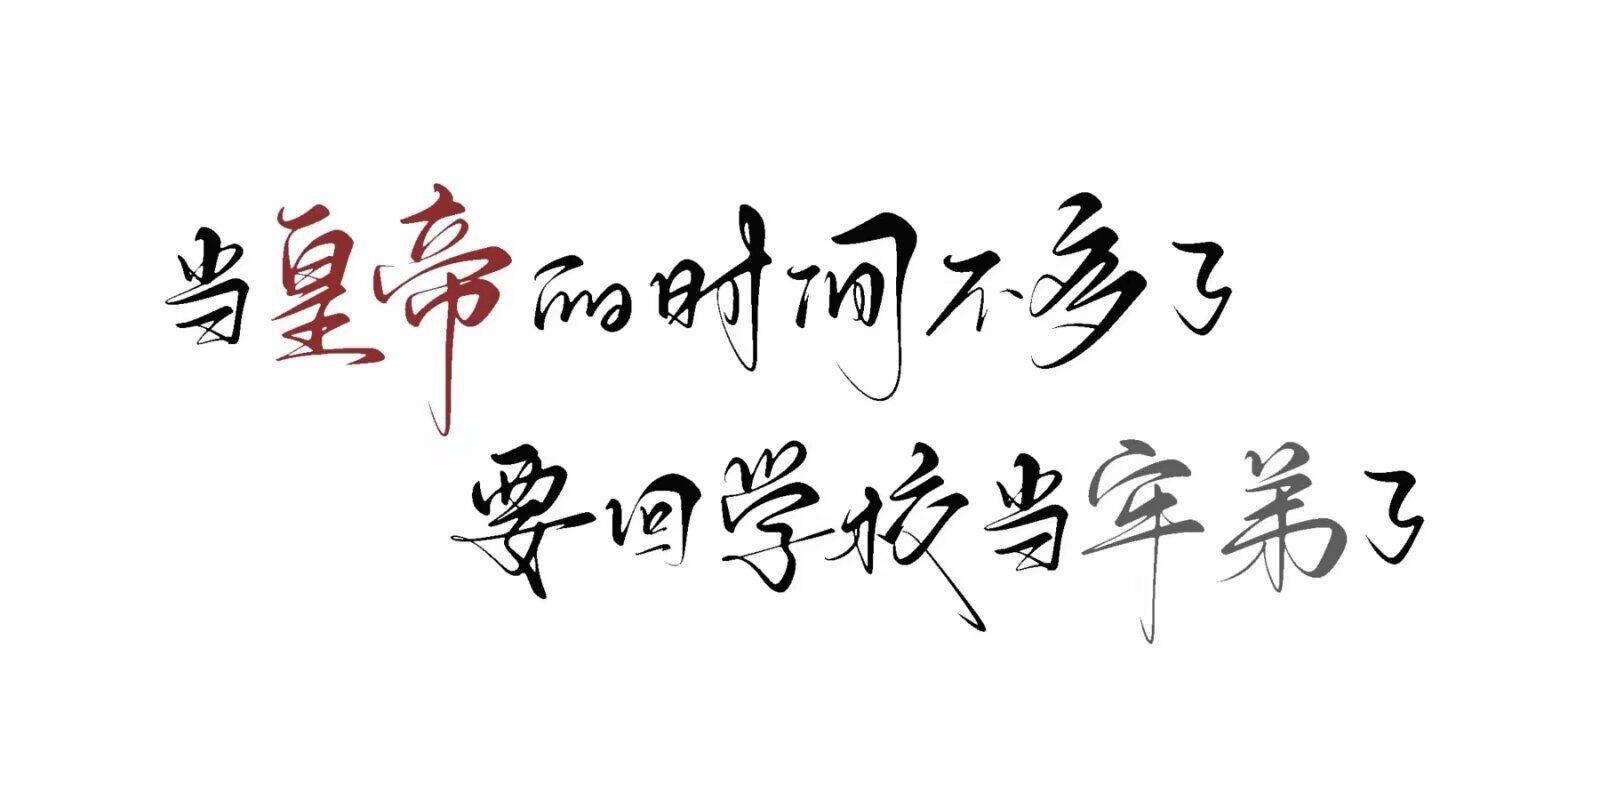 当皇帝的时间不多了
要回学校当牢弟了